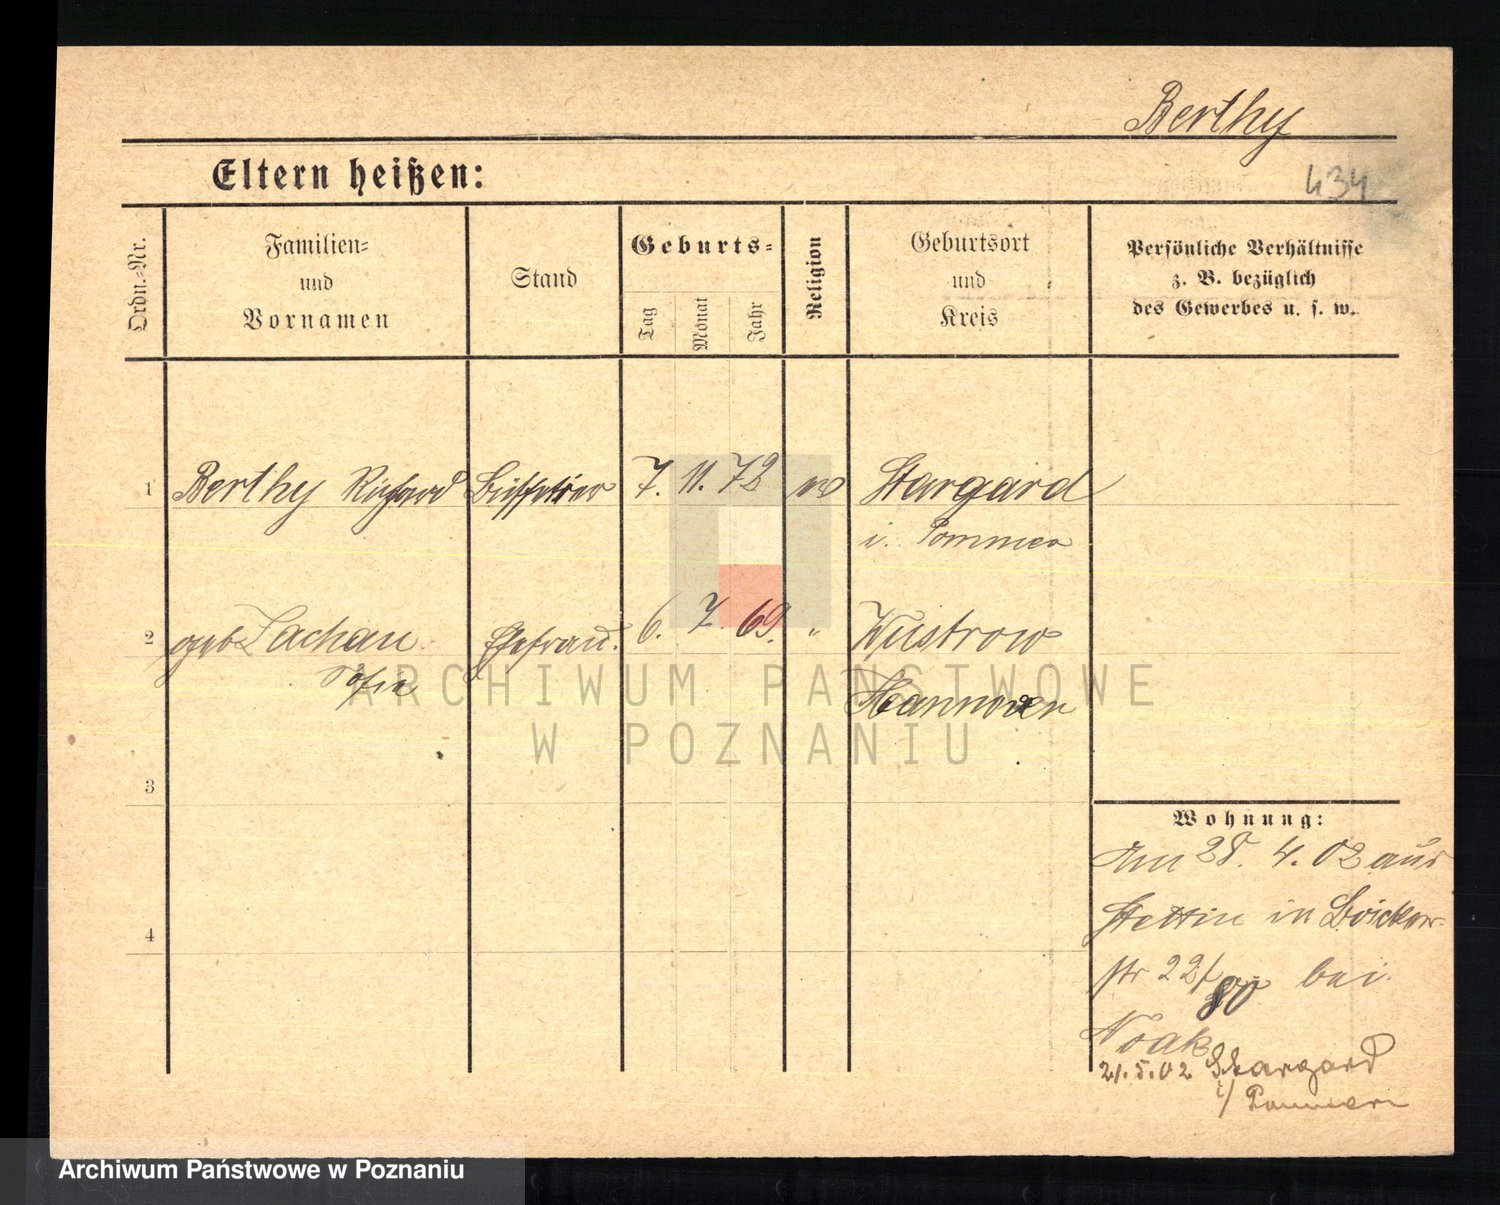 Berthy
434
Eltern heißen:
Ordn.-Nr.
Familien-
und
Vornamen
Stand
Geburts-
Tag
Monat
Jahr
Religion
Geburtsort
und
Kreis
Persönliche Verhältnisse
z. B. bezüglich
des Gewerbes u. s. w.
1 Berthy Richard Büffetier 7. 11. 72 Stargard
i. Pommern
2 geb Lachau Ehefrau. 6. 7. 69. " Wustrow
Sofie Hannover
3
4
Wohnung:
Am 28. 4. 02 aus
Stettin in
str 22/ 80 bei
Noak
21.5.02 Stargard
i/ Pommern
ARCHIWUM PAŃSTWOWE
W POZNANIU
Archiwum Państwowe w Poznaniu